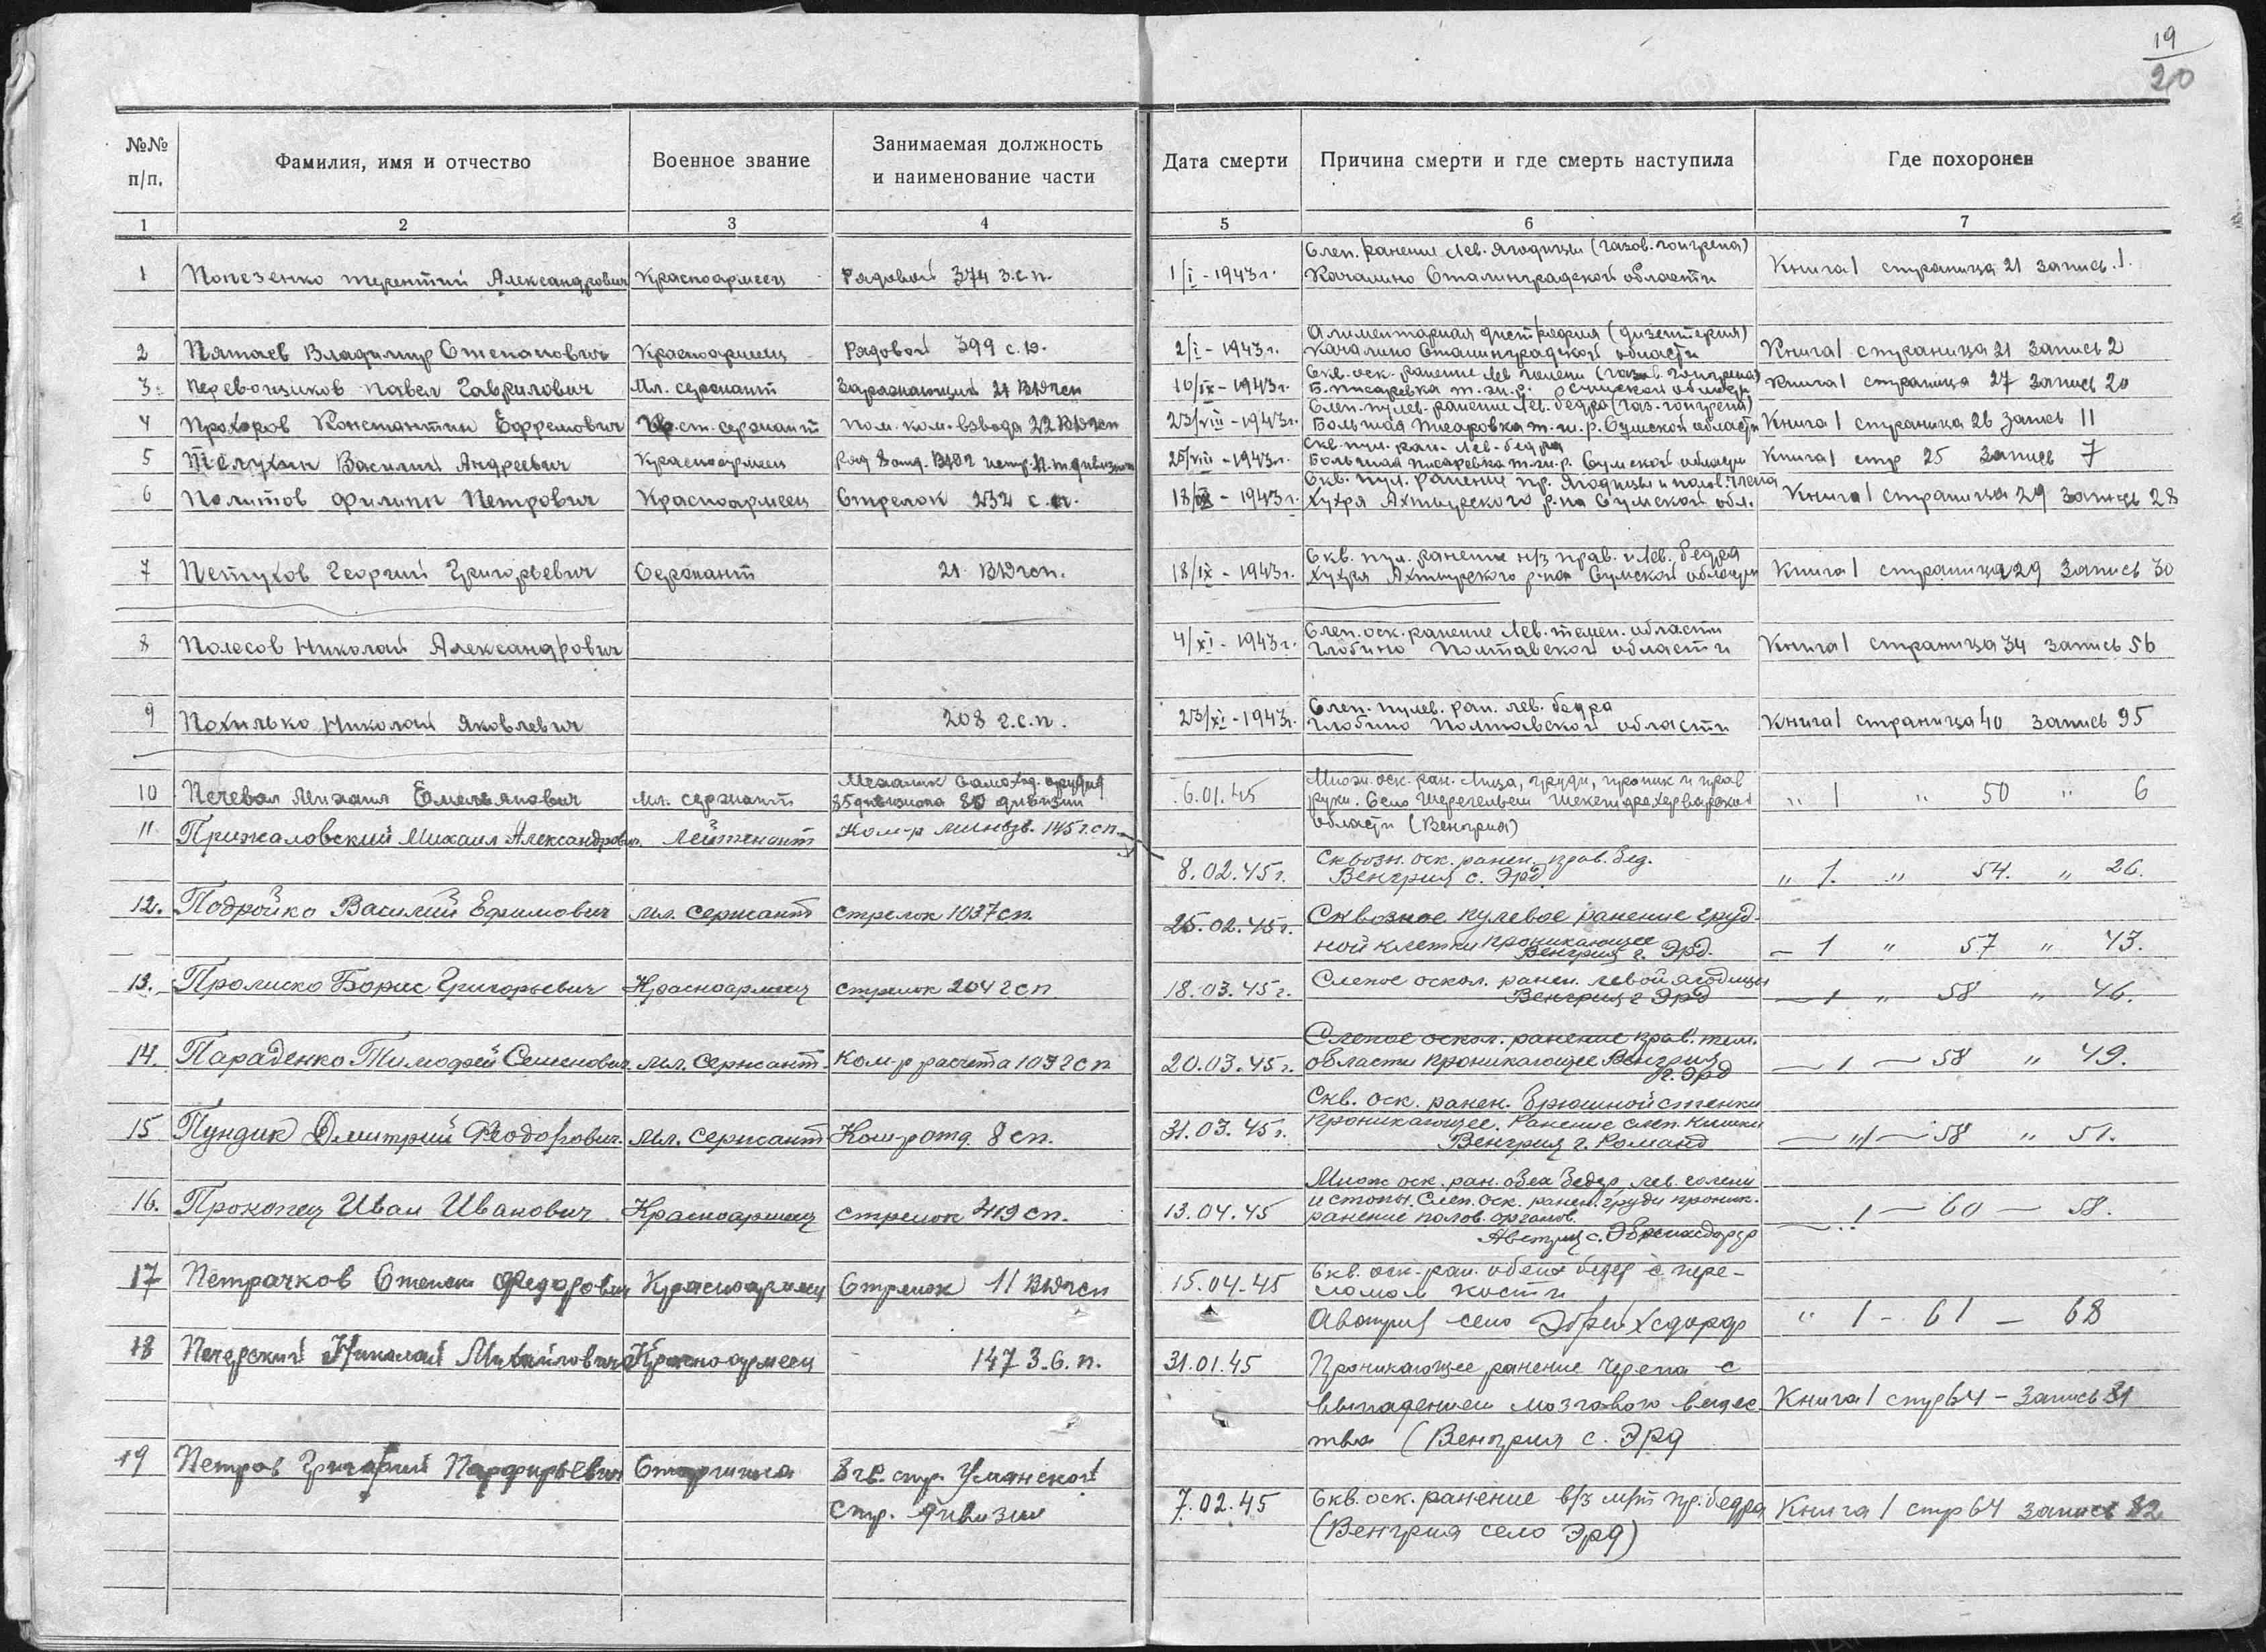 19
20
№№ п/п.
Фамилия, имя и отчество
Военное звание
Занимаемая должность и наименование части
Дата смерти
Причина смерти и где смерть наступила
Где похоронен
1 2 3 4 5 6 7
Слеп. ранение Лев. ягодицы (газов. гангрена)
1 Терентий Александрович Красноармеец Рядовой 374 з.с.п. 1/I - 1943г. Качалино Сталинградской области Книга 1 страница 21 запись 1.
Алиментарная дистрофия (дизентерия)
2 Пятаев Владимир Степанович Красноармеец Рядовой 399 с. 2/I - 1943г. Качалино Сталинградской области Книга 1 страница 21 запись 2
Скв. оск. ранение Лев голени (газов. гангрена)
3 Перевозчиков Павел Гаврилович Мл. сержант Заряжающий 21 ВДгсп 10/IX - 1943г. Б. Писаревка т. Сумской области Книга 1 страница 27 запись 20
Слеп. пулев. ранение Лев. бедра (газ. гангрена)
4 Прохоров Константин Ефремович ст. сержант Пом. ком. взвода 22 ВДгсп 23/VIII - 1943г. Большая Писаровка Сумской области Книга 1 страница 26 запись 11
Скв. пул. ран. Лев. бедра
5 Василий Андреевич Красноармеец 25/VIII - 1943г. Большая Писаревка Сумской области Книга 1 стр 25 запись 7
Скв. пул. ранение пр. ягодицы и полов. члена
6 Политов Филипп Петрович Красноармеец Стрелок 232 с.п. 18/IX - 1943г. Хухря Ахтырского р-на Сумской обл. Книга 1 страница 29 запись 28
Скв. пул. ранение н/з прав. и Лев. бедра
7 Петухов Георгий Григорьевич Сержант 21 ВДгсп. 18/IX - 1943г. Хухря Ахтырского р-на Сумской области Книга 1 страница 29 запись 30
Слеп. оск. ранение Лев. темен. области
8 Полесов Николай Александрович 4/XI - 1943г. Глобино Полтавской области Книга 1 страница 34 запись 56
Слеп. пулев. ран. лев. бедра
9 Похилько Николай Яковлевич 208 г.с.п. 23/XI - 1943г. Глобино Полтавской области Книга 1 страница 40 запись 95
Механик самоход. орудия
Множ. оск. ран. Лица, груди, проник и прав
10 Печевал Михаил Емельянович Мл. сержант дивизиона 80 дивизии 6.01.45 руки. Село " 1 " 50 " 6
области (Венгрия)
11 Прижаловский Михаил Александрович. Лейтенант Ком-р минвзв. 145 г.сп.
Сквозн. оск. ранен. прав. бед.
8.02.45г. Венгрия с. Эрд. " 1. " 54. " 26.
12. Подройко Василий Ефимович Мл. сержант стрелок 1037сп. 25.02.45г. Сквозное пулевое ранение груд-
ной клетки проникающее
Венгрия г. Эрд. – 1 " 57 " 43.
13. Пролиско Борис Григорьевич Красноармеец стрелок 204 гсп 18.03.45г. Слепое оскол. ранен. левой ягодицы
Венгрия г Эрд — 1 " 58 " 46.
Слепое оскол. ранение прав. тем.
14. Параденко Тимофей Семенович. Мл. сержант Ком-р расчета 20.03.45г. области проникающее Венгрия
г. Эрд — 1 — 58 " 49.
Скв. оск. ранен. брюшной стенки
15 Пундик Дмитрий Феодорович. Мл. сержант Ком-р отд. 8 сп. 31.03.45г. проникающее. Ранение слеп. кишки
Венгрия г. Романд — "1 — 58 " 51.
Множ оск. ран. обеи бедер, лев. голени
16. Прокопец Иван Иванович. Красноармеец стрелок 419 сп. 13.04.45 и стопы. Слеп. оск. ранен. груди проник.
ранение полов. органов. — 1 — 60 — 58.
Австрия с.
17 Петрачков Степан Федорович Красноармеец Стрелок 11 ВДгсп 15.04.45 Скв. оск. ран. обеих бедер с пере-
ломом кости
Австрия село Эбрейхсдорф " 1 - 61 — 68
18 Печерский Николай Михайлович Красноармеец 147 з.с.п. 31.01.45 Проникающее ранение черепа с
выпадением мозгового вещес
тва (Венгрия с. Эрд Книга 1 стр 64 - Запись 81
19 Петров Григорий Парфирьевич Старшина 8 гв. стр. Уманской
стр. дивизии
7.02.45 Скв. оск. ранение в/з м/т пр. бедра Книга 1 стр 64 запись 82
(Венгрия село Эрд)